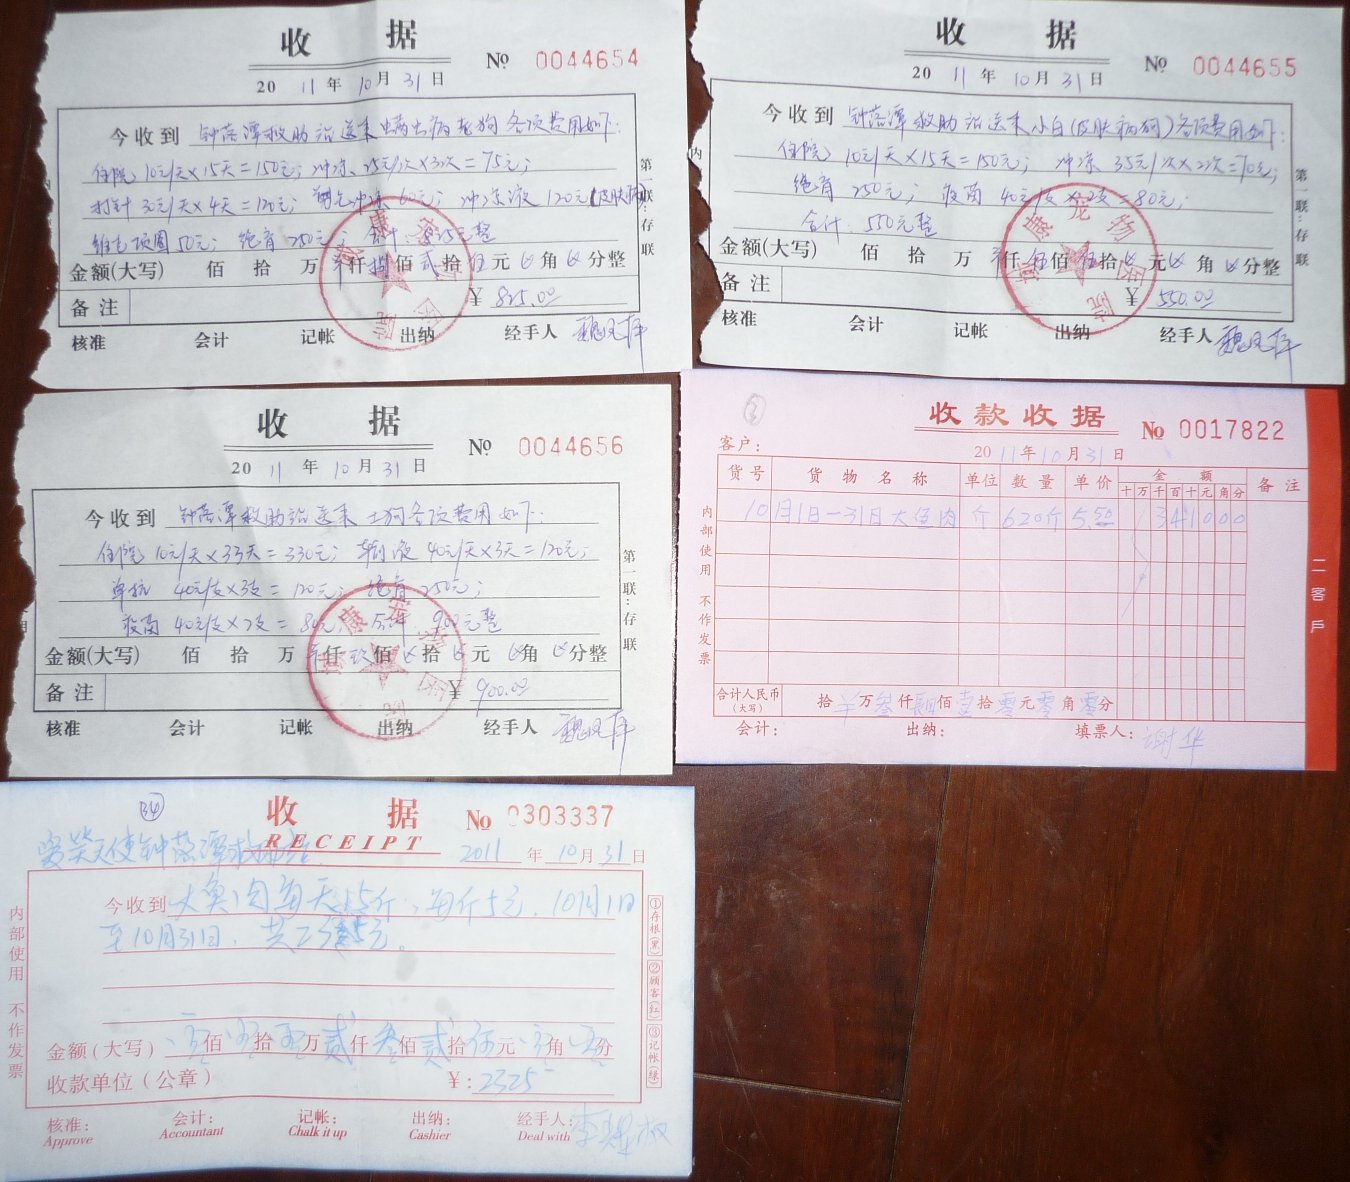 收 据
№ 0044654
20 11 年 10 月 31 日
今收到 钟落潭救助站送来 病老狗各项费用如下:
住院 10元/天×15天=150元; 冲凉 25元/次×3次=75元;
打针 30元/天×4天=120元; 冲凉 60元; 冲凉液 120元(皮肤病)
项圈50元; 绝育 250元; 合计: 825元整
金额(大写) 佰 拾 万 仟 捌 佰 贰 拾 伍 元 角 分整
备 注
¥ 825.00
核准 会计 记帐 出纳 经手人
第一联:存联
康宠物医院
收 据
№ 0044655
20 11 年 10 月 31 日
今收到 钟落潭救助站送来小白(皮肤病狗)各项费用如下:
住院 10元/天×15天=150元; 冲凉 35元/次×2次=70元;
绝育 250元; 40元/支×2支=80元;
合计: 550元整
金额(大写) 佰 拾 万 仟 伍 佰 伍 拾 元 角 分整
备 注
¥ 550.00
核准 会计 记帐 出纳 经手人
内
第一联:存联
康宠物医院
收 据
№ 0044656
20 11 年 10 月 31 日
今收到 钟落潭救助站送来 土狗各项费用如下:
住院 10元/天×33天=330元; 输液 40元/天×3天=120元;
单抗 40元/支×3支=120元; 绝育 250元;
40元/支×2支=80元 合计 900元整
金额(大写) 佰 拾 万 仟 玖 佰 拾 元 角 分整
备 注
¥ 900.00
核准 会计 记帐 出纳 经手人
第一联:存联
康宠物医院
②
收款收据
№ 0017822
客户:
20 11 年 10 月 31 日
货号 货物名称 单位 数量 单价 金额 备注
十 万 千 百 十 元 角 分
10月1日—31日大鱼肉 斤 620斤 5.50 341000
内部使用 不作发票
合计人民币(大写) 拾 ¥ 万 叁 仟 肆 佰 壹 拾 零 元 零 角 零 分
会计: 出纳: 填票人: 谢华
二 客户
34
收 据
RECEIPT
№ 0303337
天使钟落潭救助站
2011 年 10 月 31 日
今收到 大鱼肉每天15斤,每斤5元,10月1日
至10月31日,共2325元。
金额(大写) 佰 拾 万 贰 仟 叁 佰 贰 拾 伍 元 角 分
收款单位(公章) ¥: 2325
核准: 会计: 记帐: 出纳: 经手人:
Approve Accountant Chalk it up Cashier Deal with
内部使用 不作发票
①存根(黑) ②顾客(红) ③记帐(绿)